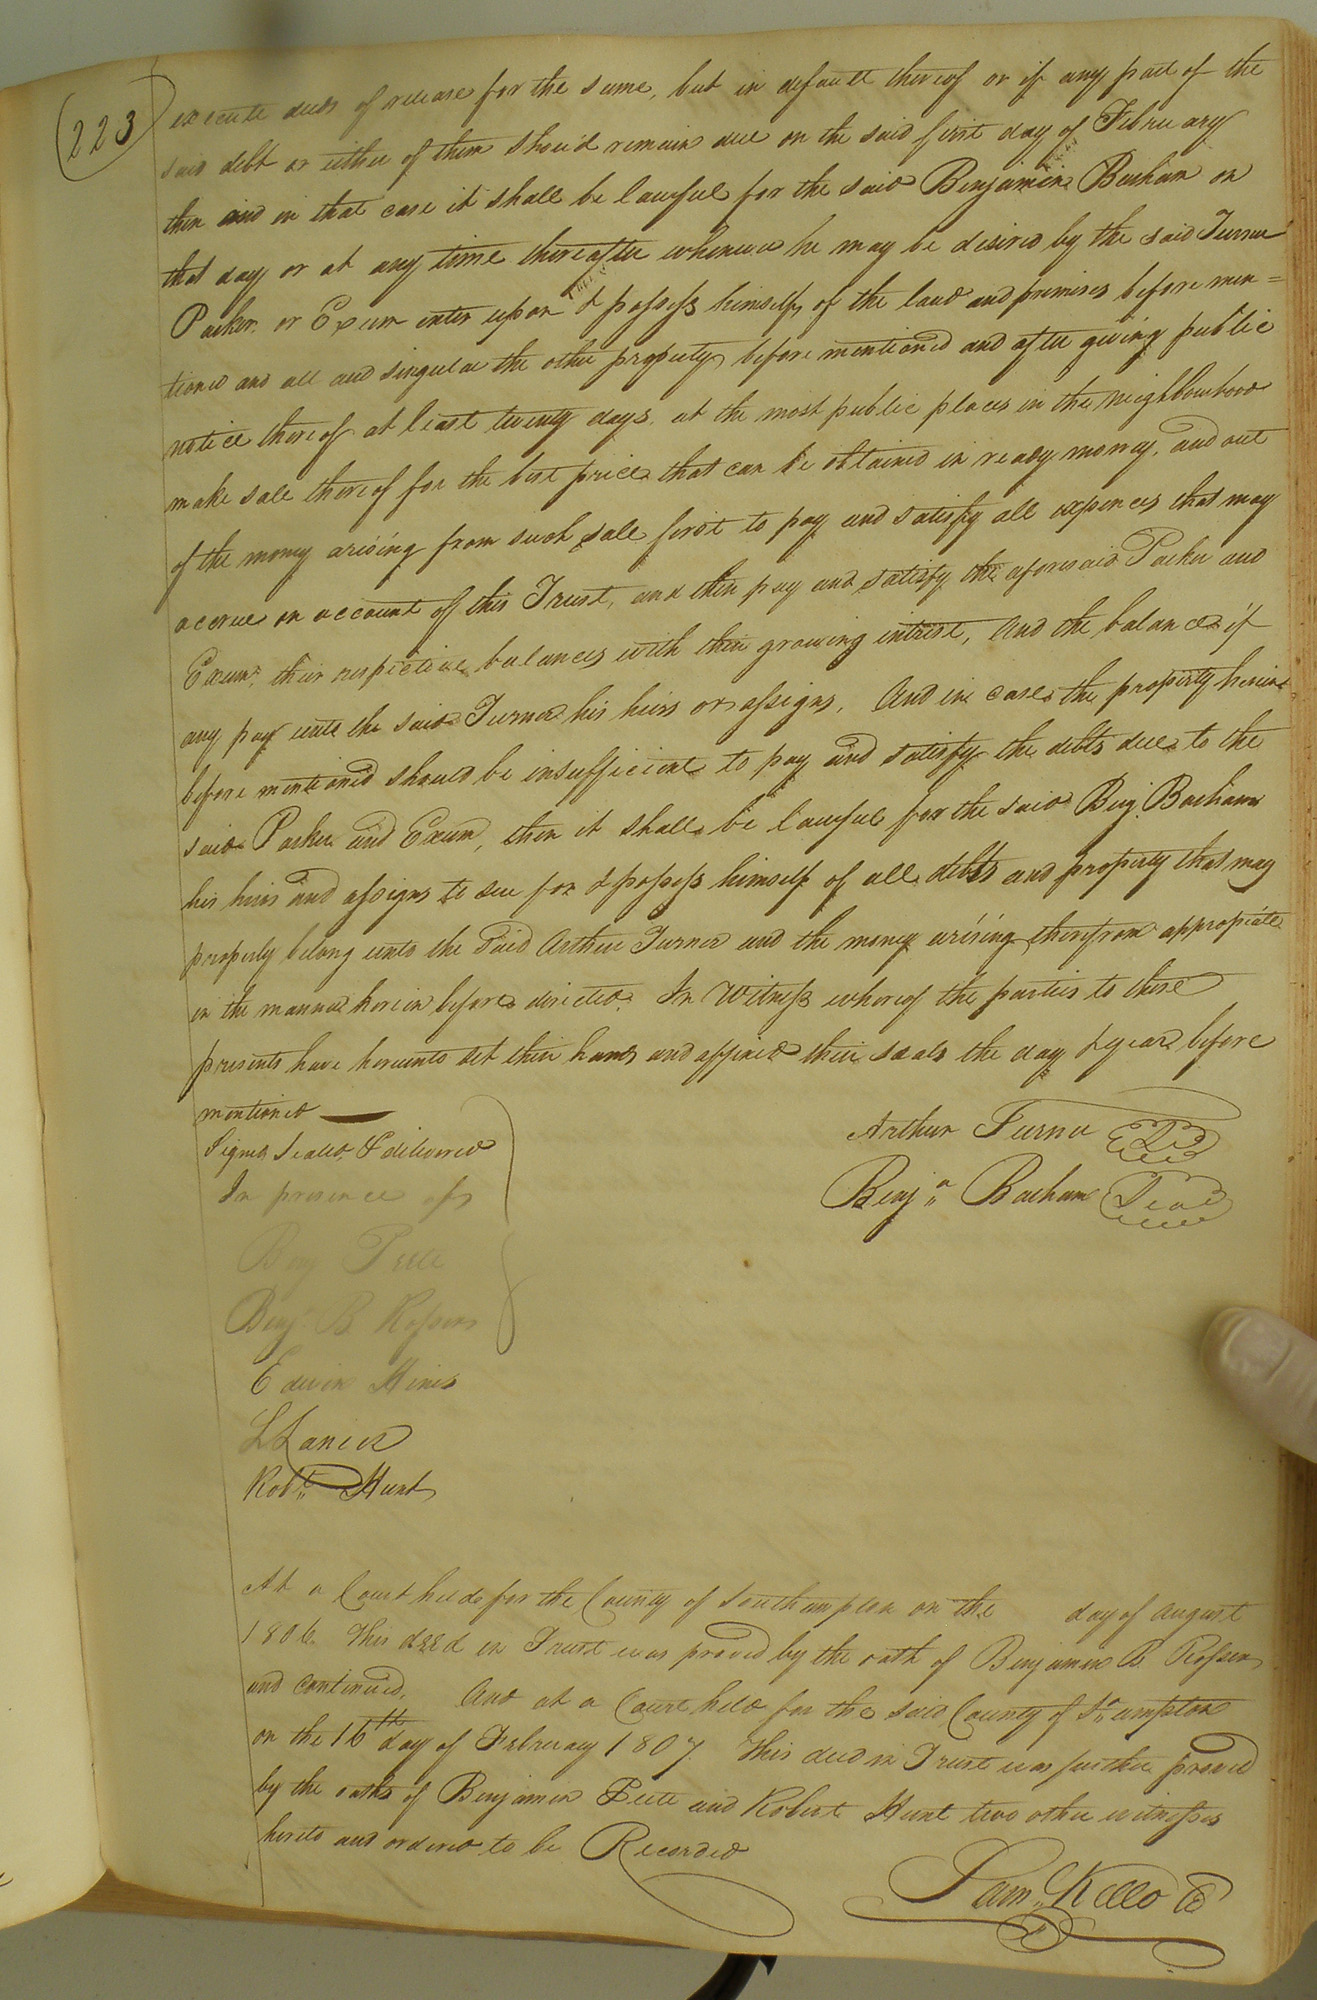 (223)
execute deeds of release for the same, but in default thereof or if any part of the
said debt or either of them should remain due on the said first day of February
then and in that case it shall be lawful for the said Benjamin Barham on
that day or at any time thereafter whenever he may be desired by the said Turner
Parker or Exum enter upon & possess himself of the land and premises before men=
tioned and all and singular the other property before mentioned and after giving public
notice thereof at least twenty days at the most public places in the neighbourhood
make sale thereof for the best price that can be obtained in ready money, and out
of the money arising from such sale first to pay and satisfy all expences that may
accrue on account of this Trust, and then pay and satisfy the aforesaid Parker and
Exum, their respective balances with their growing intrest, And the balance if
any pay unto the said Turner his heirs or assigns, And in case the property herein
before mentioned should be insufficient to pay and satisfy the debts due to the
said Parker and Exum, then it shall be lawful for the said Benj. Barham
his heirs and assigns to sue for & possess himself of all debts and property that may
properly belong unto the said Arthur Turner and the money arising therefrom appropiate
in the manner herein before directed. In Witness whereof the parties to these
presents have hereunto set their hands and affixed their seals the day & year before
mentioned
Signed Sealed & delivered
In presence of
Arthur Turner Seal
Benjn Barham Seal
Benj Peete
Benj B Rosser
Edwin Hines
L Lanier
Robt Hunt
At a Court held for the County of Southampton on the day of August
1806. This deed in Trust was proved by the oath of Benjamin B. Rosser
and continued. And at a Court held for the said County of Sn ampton
on the 16th day of February 1807. This deed in Trust was further proved
by the oaths of Benjamin Peete and Robert Hunt two other witnesses
hereto and ordered to be Recorded
Saml Kello Cl